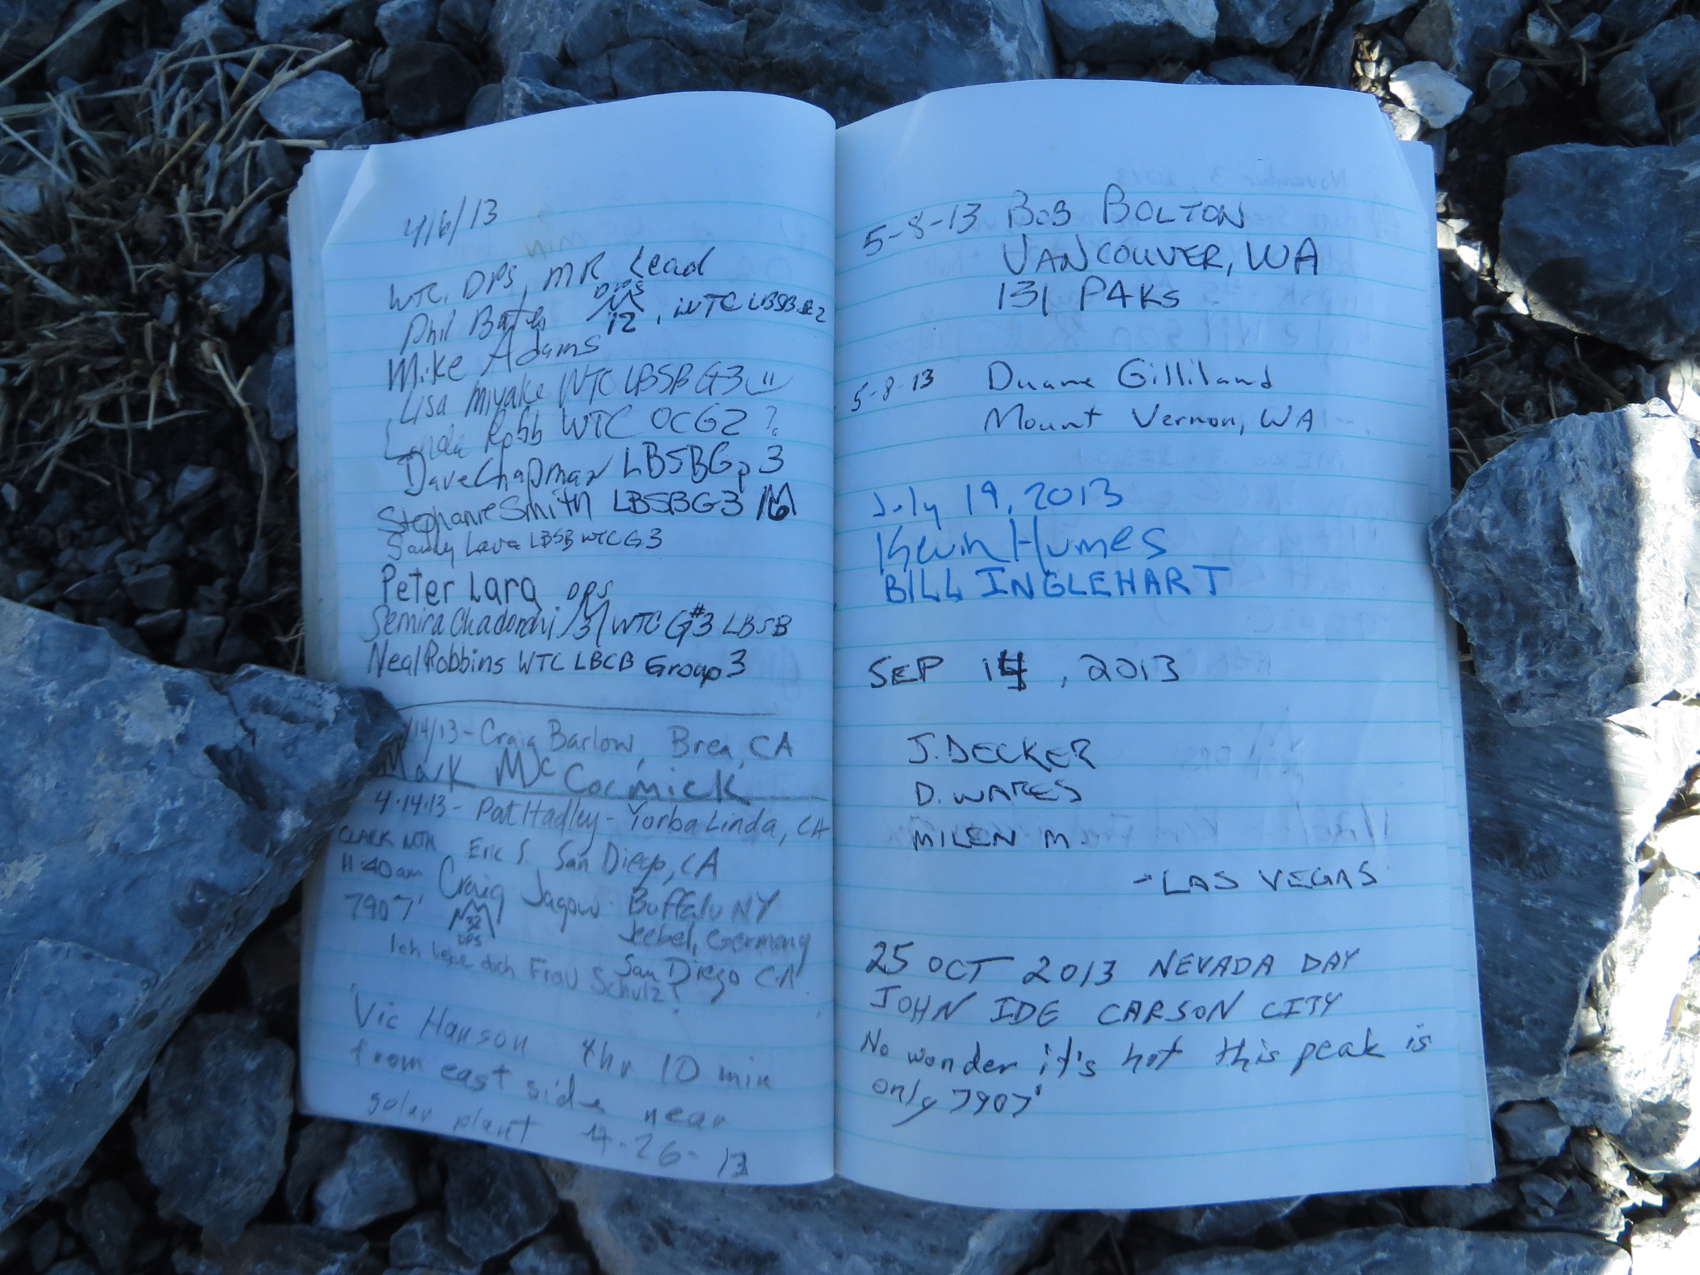 4/6/13
WTC, DPS, MR Lead
Phil Bates DPS 12, WTC LBSB
Mike Adams
Lisa Miyake WTC LBSB G3
Linda Robb WTC OCG2 ?
Dave Chapman LBSBGp 3
Stephanie Smith LBSBG3 16
LBSB WTC G3
Peter Lara DPS
Semira 31 WTC G#3 LBSB
Neal Robbins WTC LBCB Group 3
/14/13 - Craig Barlow, Brea, CA
Mark McCormick
4·14·13 - Pat Hadley - Yorba Linda, CA
CLARK MTN Eric S. San Diego, CA
11:40am Craig Jagow Buffalo NY
7907' 32 DPS Germany
Ich liebe dich Frau Schulz! San Diego CA
Vic Hanson 4hr 10 min
from east side near
solar plant 4-26-13
5-8-13 BOB BOLTON
VANCOUVER, WA
131 P4Ks
5-8-13 Duane Gilliland
Mount Vernon, WA
July 19, 2013
Kevin Humes
BILL INGLEHART
SEP 14, 2013
J. DECKER
D. WARES
MILEN M.
- LAS VEGAS
25 OCT 2013 NEVADA DAY
JOHN IDE CARSON CITY
No wonder it's hot this peak is
only 7907'